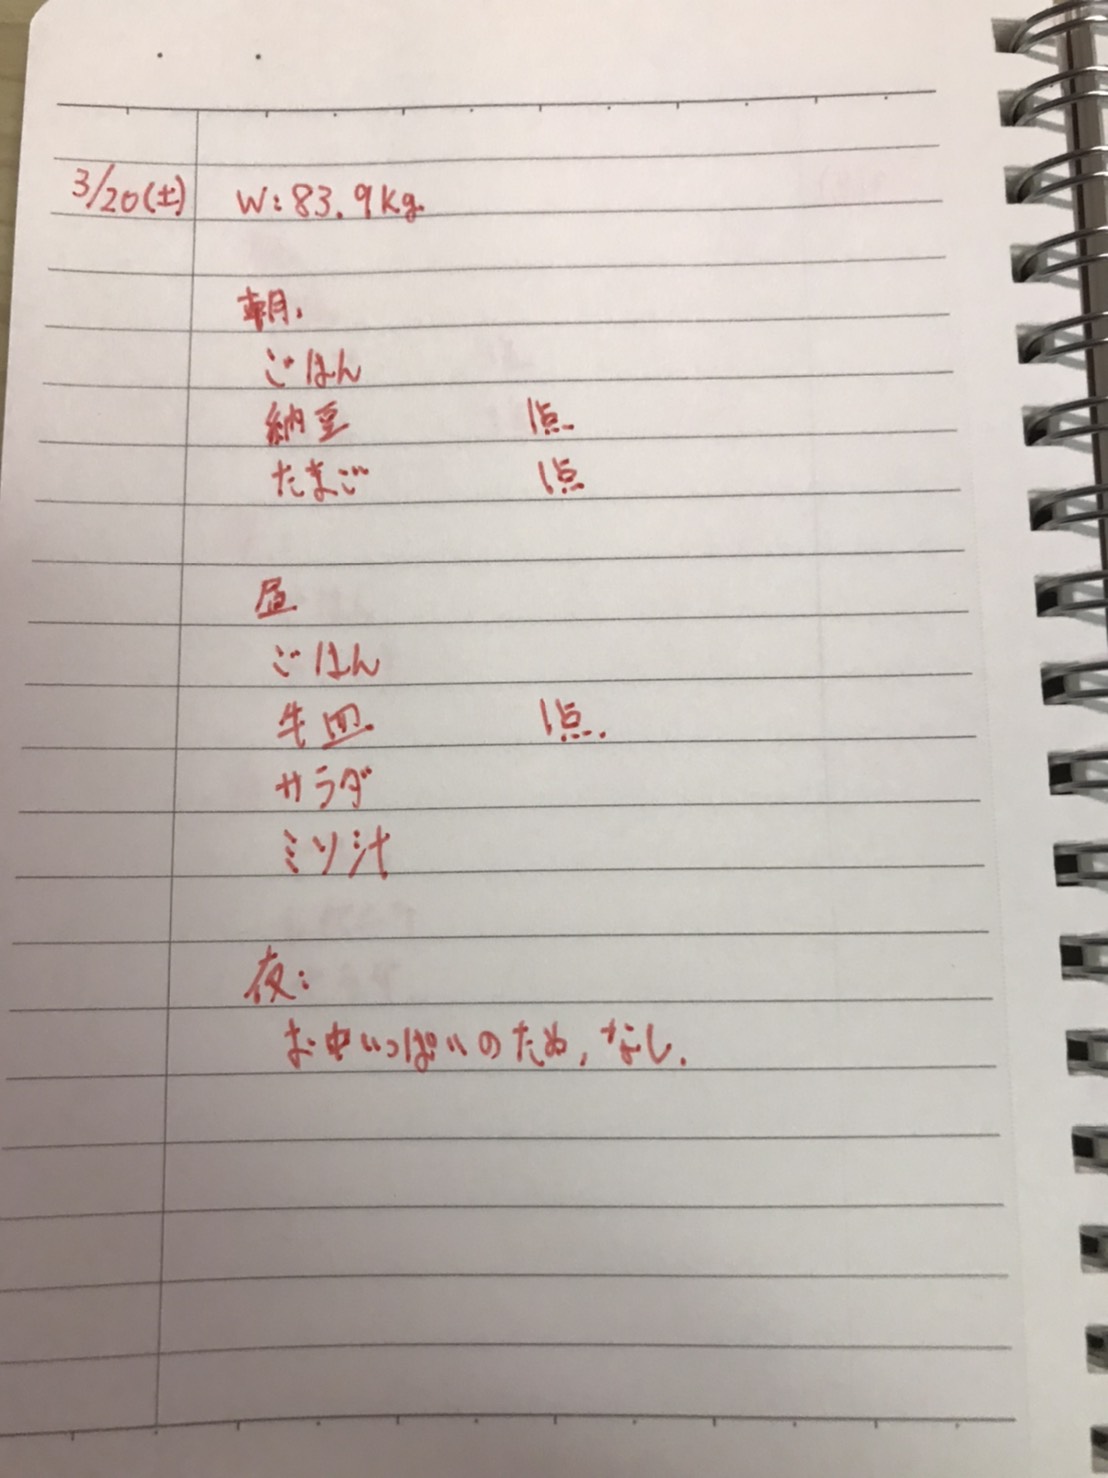 3/20(土) W: 83.9kg.
朝.
ごはん
納豆 1点.
たまご 1点
昼.
ごはん
牛皿. 1点.
サラダ
ミソ汁
夜:
お中いっぱいのため, なし.